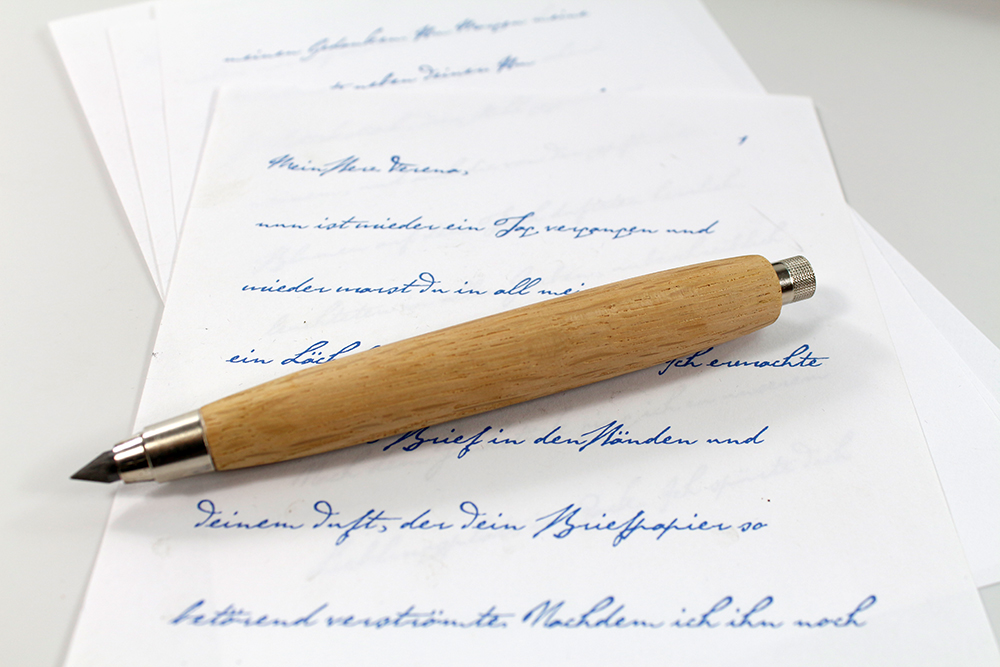 meinen Gedanken
neben deinen
1
Mein Herz Verena,
nun ist wieder ein Tag vergangen und
wieder warst Du in all mei
ein Läch
Ich erwachte
Brief in den Händen und
deinem Duft, der dein Briefpapier so
betörend verströmte. Nachdem ich ihn noch